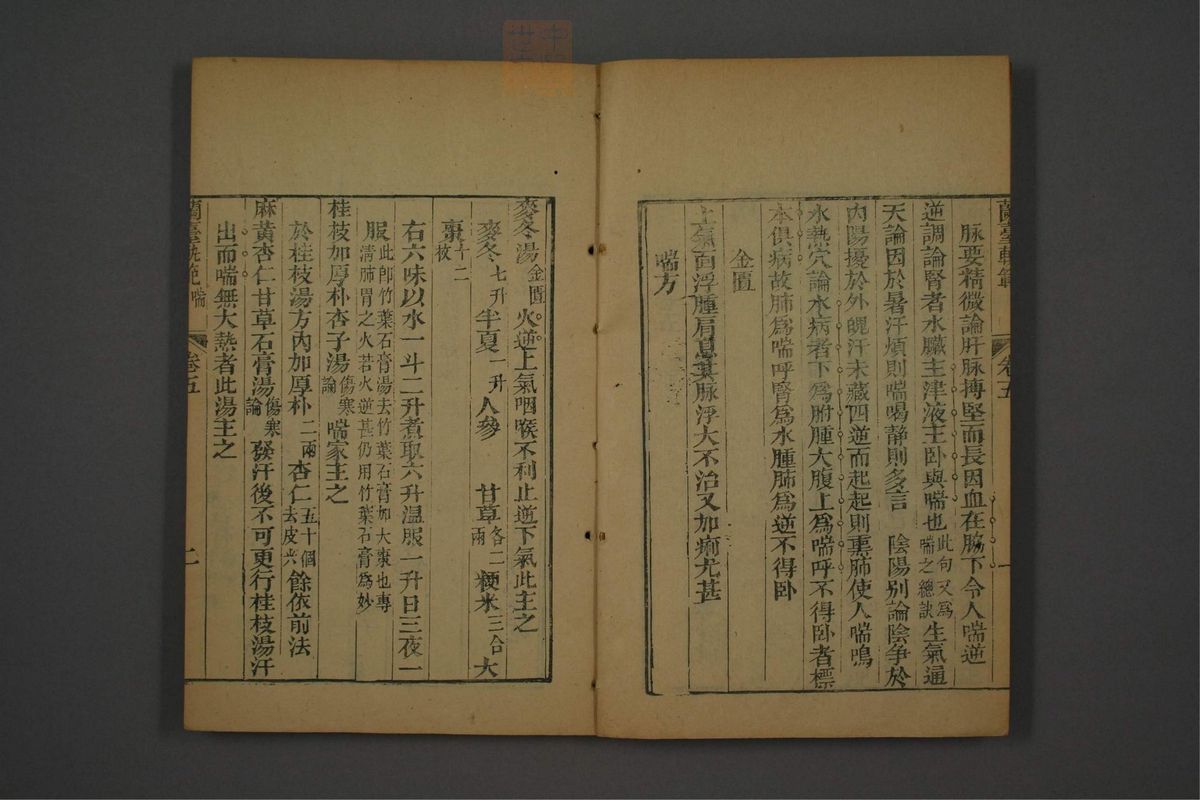 蘭臺軌範 卷五 一
脉要精微論肝脉搏堅而長因血在脇下令人喘逆
逆調論腎者水臟主津液主卧與喘也此句又為喘之總訣生氣通
天論因於暑汗煩則喘喝靜則多言 陰陽别論陰争於
内陽擾於外魄汗未藏四逆而起起則熏肺使人喘鳴
水熱穴論水病者下為胕腫大腹上為喘呼不得卧者標
本俱病故肺為喘呼腎為水腫肺為逆不得卧
金匱
上氣面浮腫肩息其脉浮大不治又加痢尤甚
喘方
麥冬湯金匱火逆上氣咽喉不利止逆下氣此主之
麥冬七升半夏一升人參 甘草各二兩粳米三合大
棗十二枚
右六味以水一斗二升煮取六升温服一升日三夜一
服此卽竹葉石膏湯去竹葉石膏加大棗也專清肺胃之火若火逆甚仍用竹葉石膏為妙
桂枝加厚朴杏子湯傷寒論喘家主之
於桂枝湯方内加厚朴二兩杏仁五十個去皮尖餘依前法
麻黄杏仁甘草石膏湯傷寒論發汗後不可更行桂枝湯汗
出而喘無大熱者此湯主之
蘭臺軌範 喘 卷五 二